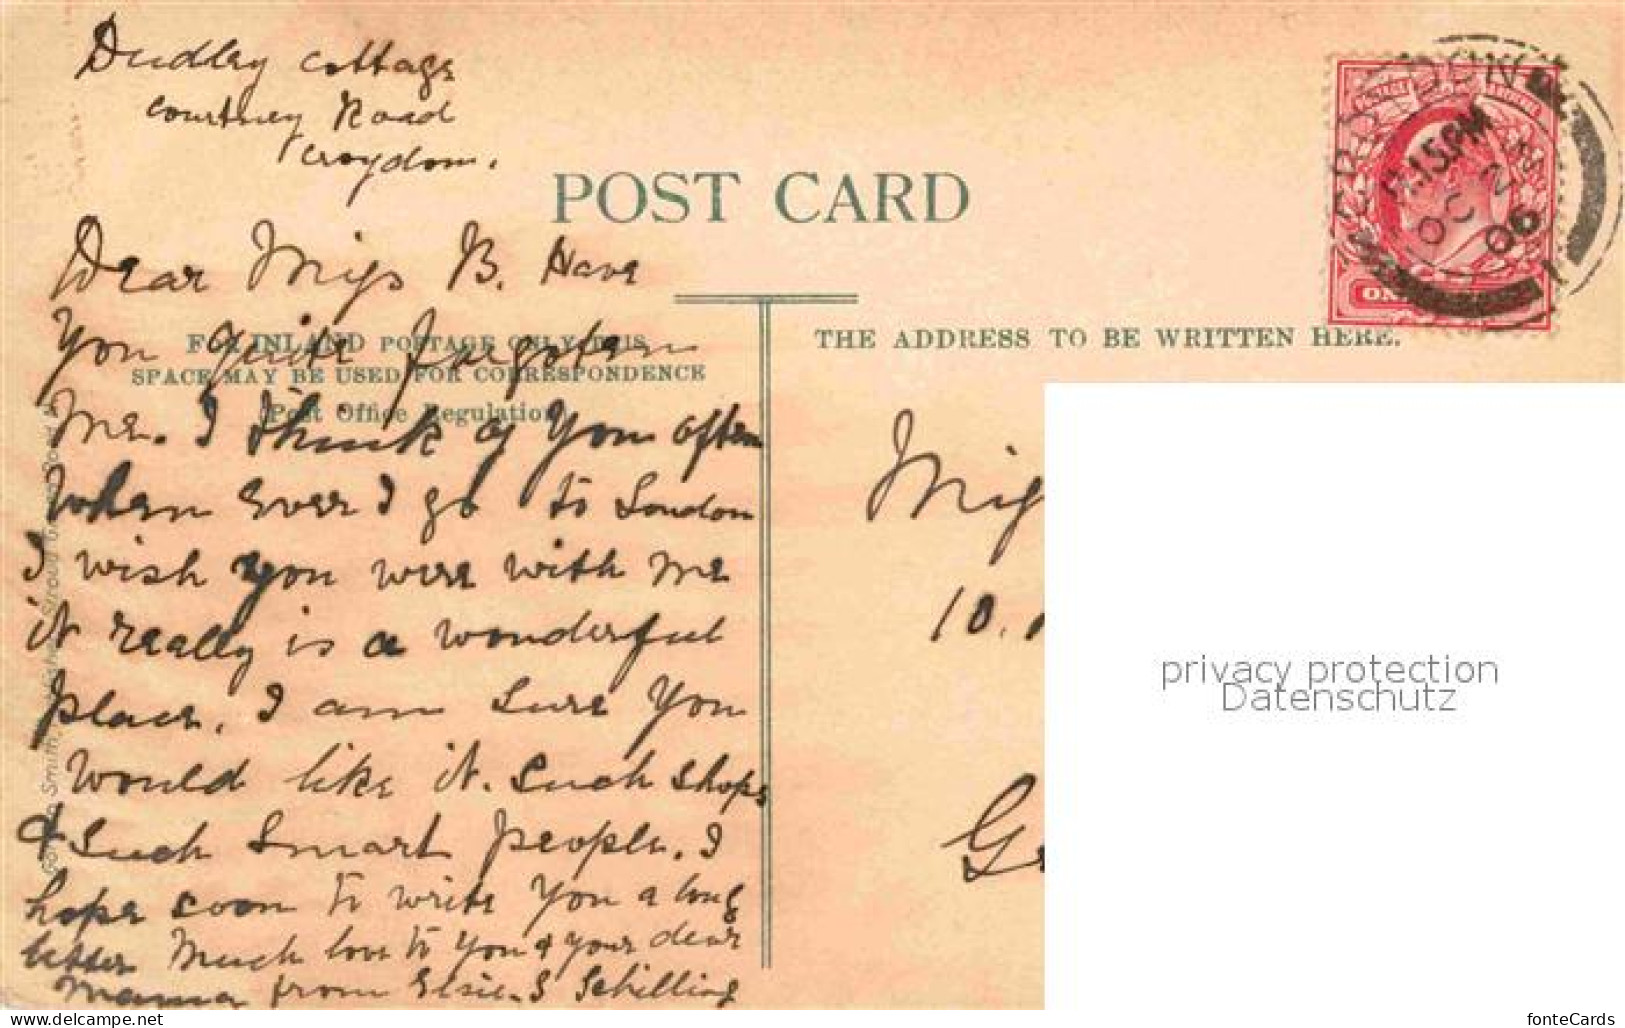 Dudley Cottage
Courtney Road
Croydon.
POST CARD
Dear Miss B. Have
You quite forgoten
Me. I think of You often
When ever I go to London
I wish you were with me
it really is a wonderful
place. I am sure You
would like it. Such shops
& Such Smart people. I
hope soon to write You a long
letter Much love to You & your dear
Mama from Elsie. S Schilling
FOR INLAND POSTAGE ONLY THIS
SPACE MAY BE USED FOR CORRESPONDENCE
(Post Office Regulation)
THE ADDRESS TO BE WRITTEN HERE.
POSTAGE
REVENUE
.15.PM
OC 2
06
1
Miss
10.
Gr
privacy protection
Datenschutz
https://www.delcampe.net
fonteCards